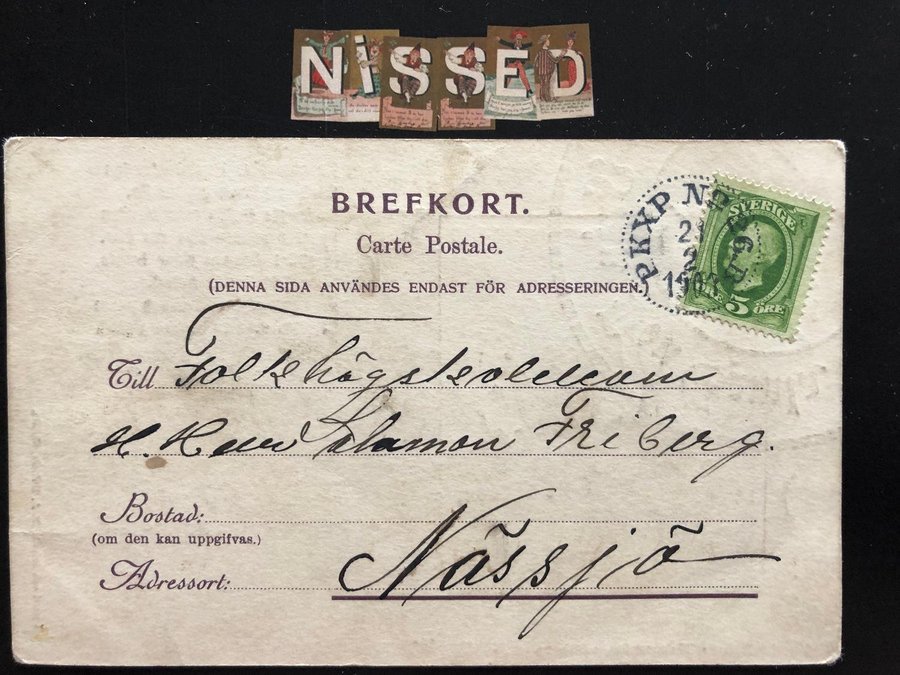 NiSSED
BREFKORT.
Carte Postale.
(DENNA SIDA ANVÄNDES ENDAST FÖR ADRESSERINGEN.)
PKXP No
21
2
1903
SVERIGE
5 ÖRE
Till Folkhögskolekam
H. Herr Salamon Friberg.
Bostad:
(om den kan uppgifvas.)
Adressort: Nässjö